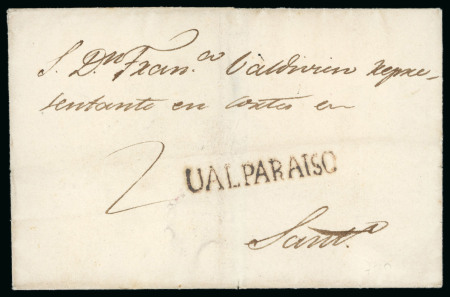 S. Dn Fran.co Valdivien repre-
sentante en cortes en
2
UALPARAISO
Sant.o